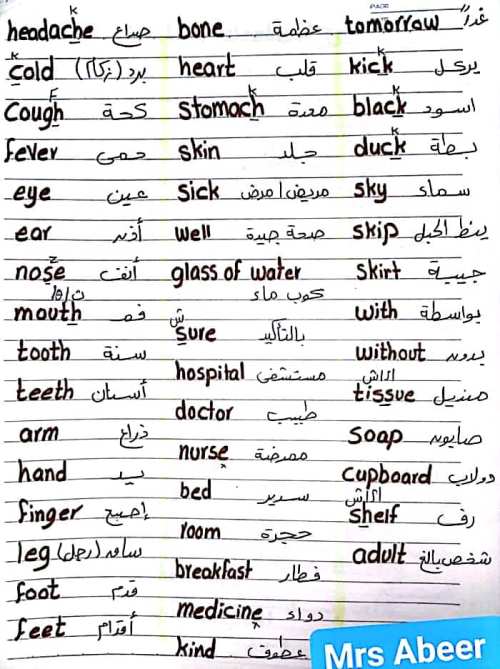 headache صداع
cold برد (زكام)
cough كحة
fever حمى
eye عين
ear أذن
nose أنف
mouth فم
tooth سنة
teeth أسنان
arm ذراع
hand يد
finger إصبع
leg ساق (رجل)
foot قدم
feet أقدام
bone عظمة
heart قلب
stomach معدة
skin جلد
sick مريض / مرض
well صحة جيدة
glass of water
كوب ماء
ش
sure بالتأكيد
hospital مستشفى
doctor طبيب
nurse ممرضة
bed سرير
room حجرة
breakfast فطار
medicine دواء
kind عطوف
PAGE
tomorrow غداً
kick يركل
black اسود
duck بطة
sky سماء
skip ينط الحبل
skirt جيبة
with بواسطة
without بدون
tissue منديل
soap صابون
cupboard دولاب
shelf رف
adult شخص بالغ
Mrs Abeer